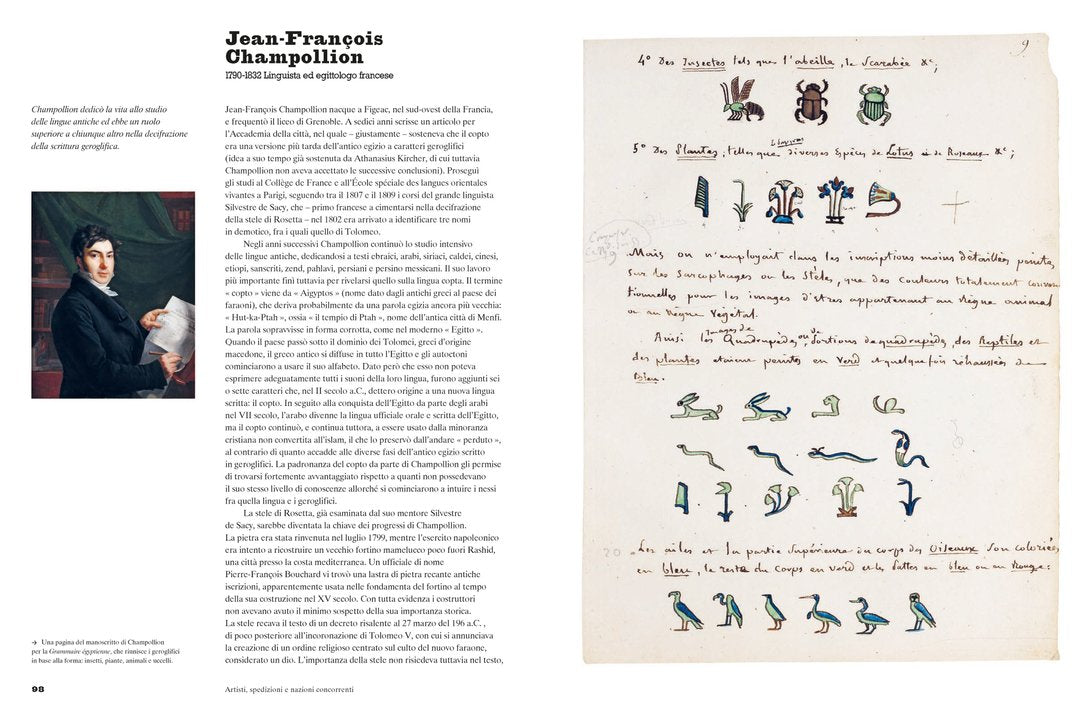 Jean-François
Champollion
1790-1832 Linguista ed egittologo francese
Champollion dedicò la vita allo studio
delle lingue antiche ed ebbe un ruolo
superiore a chiunque altro nella decifrazione
della scrittura geroglifica.
Jean-François Champollion nacque a Figeac, nel sud-ovest della Francia,
e frequentò il liceo di Grenoble. A sedici anni scrisse un articolo per
l'Accademia della città, nel quale – giustamente – sosteneva che il copto
era una versione più tarda dell'antico egizio a caratteri geroglifici
(idea a suo tempo già sostenuta da Athanasius Kircher, di cui tuttavia
Champollion non aveva accettato le successive conclusioni). Proseguì
gli studi al Collège de France e all'École spéciale des langues orientales
vivantes a Parigi, seguendo tra il 1807 e il 1809 i corsi del grande linguista
Silvestre de Sacy, che – primo francese a cimentarsi nella decifrazione
della stele di Rosetta – nel 1802 era arrivato a identificare tre nomi
in demotico, fra i quali quello di Tolomeo.
Negli anni successivi Champollion continuò lo studio intensivo
delle lingue antiche, dedicandosi a testi ebraici, arabi, siriaci, caldei, cinesi,
etiopi, sanscriti, zend, pahlavi, persiani e persino messicani. Il suo lavoro
più importante finì tuttavia per rivelarsi quello sulla lingua copta. Il termine
« copto » viene da « Aigyptos » (nome dato dagli antichi greci al paese dei
faraoni), che deriva probabilmente da una parola egizia ancora più vecchia:
« Hut-ka-Ptah », ossia « il tempio di Ptah », nome dell'antica città di Menfi.
La parola sopravvisse in forma corrotta, come nel moderno « Egitto ».
Quando il paese passò sotto il dominio dei Tolomei, greci d'origine
macedone, il greco antico si diffuse in tutto l'Egitto e gli autoctoni
cominciarono a usare il suo alfabeto. Dato però che esso non poteva
esprimere adeguatamente tutti i suoni della loro lingua, furono aggiunti sei
o sette caratteri che, nel II secolo a.C., dettero origine a una nuova lingua
scritta: il copto. In seguito alla conquista dell'Egitto da parte degli arabi
nel VII secolo, l'arabo divenne la lingua ufficiale orale e scritta dell'Egitto,
ma il copto continuò, e continua tuttora, a essere usato dalla minoranza
cristiana non convertita all'islam, il che lo preservò dall'andare « perduto »,
al contrario di quanto accadde alle diverse fasi dell'antico egizio scritto
in geroglifici. La padronanza del copto da parte di Champollion gli permise
di trovarsi fortemente avvantaggiato rispetto a quanti non possedevano
il suo stesso livello di conoscenze allorché si cominciarono a intuire i nessi
fra quella lingua e i geroglifici.
La stele di Rosetta, già esaminata dal suo mentore Silvestre
de Sacy, sarebbe diventata la chiave dei progressi di Champollion.
La pietra era stata rinvenuta nel luglio 1799, mentre l'esercito napoleonico
era intento a ricostruire un vecchio fortino mamelucco poco fuori Rashid,
una città presso la costa mediterranea. Un ufficiale di nome
Pierre-François Bouchard vi trovò una lastra di pietra recante antiche
iscrizioni, apparentemente usata nelle fondamenta del fortino al tempo
della sua costruzione nel XV secolo. Con tutta evidenza i costruttori
non avevano avuto il minimo sospetto della sua importanza storica.
La stele recava il testo di un decreto risalente al 27 marzo del 196 a.C. ,
di poco posteriore all'incoronazione di Tolomeo V, con cui si annunciava
la creazione di un ordine religioso centrato sul culto del nuovo faraone,
considerato un dio. L'importanza della stele non risiedeva tuttavia nel testo,
→ Una pagina del manoscritto di Champollion
per la Grammaire égyptienne, che riunisce i geroglifici
in base alla forma: insetti, piante, animali e uccelli.
98
Artisti, spedizioni e nazioni concorrenti
9
4° Des Insectes tels que l'abeille, le Scarabée &c;
5° Des Plantes, telles que diverses Espèces de Lotus et de Roseaux &c;
Mais on n'employait dans les inscriptions moins détaillées peintes
sur les Sarcophages ou les Stèles, que des Couleurs totalement conven
tionnelles pour les images d'êtres appartenant au Règne animal
ou au Règne Végétal.
Ainsi les images de Quadrupèdes, ou de portions de quadrupèdes, des Reptiles et
des plantes étaient peintes en Verd et quelquefois réhaussées de
Bleu.
20
Les ailes et la partie Supérieure du corps des Oiseaux Son coloriées
en bleu, le reste du Corps en verd et les Pattes en bleu ou en Rouge: